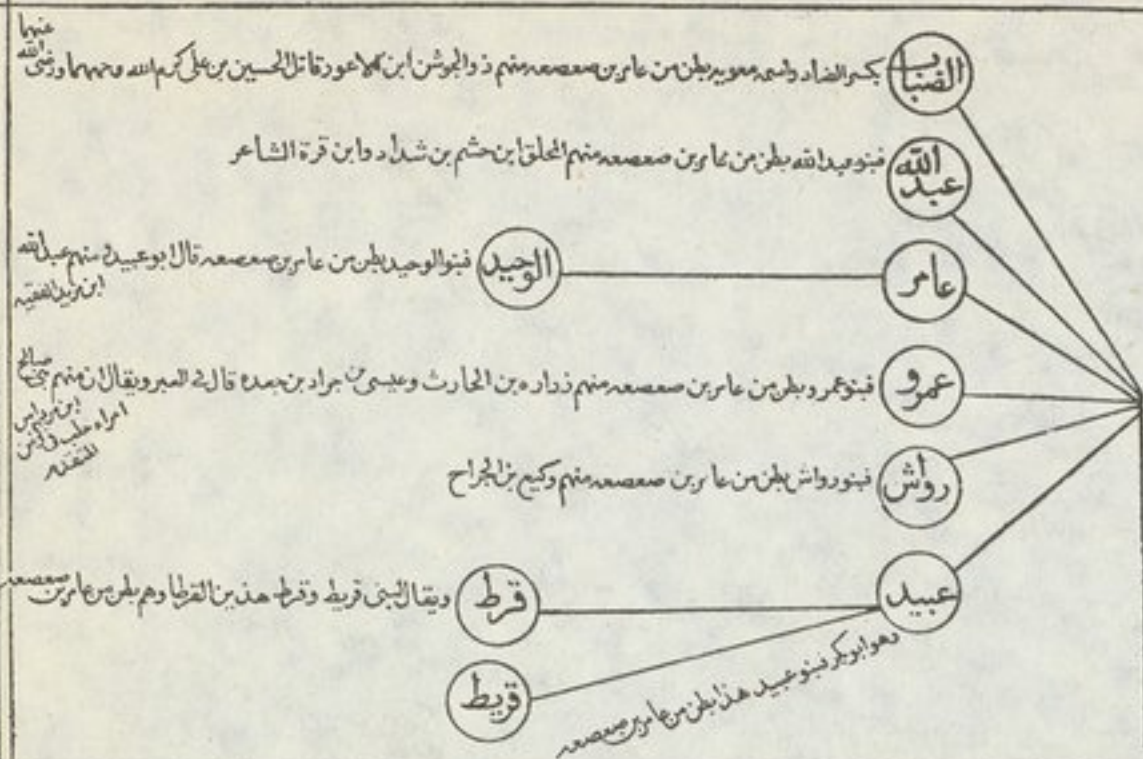 الضباب
بكسر الضاد واسمه معويه بطن من عامر بن صعصعه منهم ذو الجوشن ابن الاعور قاتل الحسين بن على كرم الله وجههما ورضى الله عنهما
عبد الله
فبنو عبد الله بطن من عامر بن صعصعه منهم المحلق ابن حشم بن شداد وابن قرة الشاعر
عامر
الوحيد
فبنو الوحيد بطن من عامر بن صعصعه قال ابو عبيده منهم عبد الله
ابن يزيد الفقيه
عمرو
فبنو عمرو بطن من عامر بن صعصعه منهم زراره بن الحارث وعيسى بن جراد بن جعده قال فى العبر ويقال ان منهم بنى صالح
ابن مرداس
امراء حلب
رواش
فبنو رواش بطن من عامر بن صعصعه منهم وكيع بن الجراح
عبيد
وهو ابو بكر فبنو عبيد هذا بطن من عامر بن صعصعه
قرط
ويقال لبنى قريط وقرط هذين القرطا وهم بطن من عامر بن صعصعه
قريط